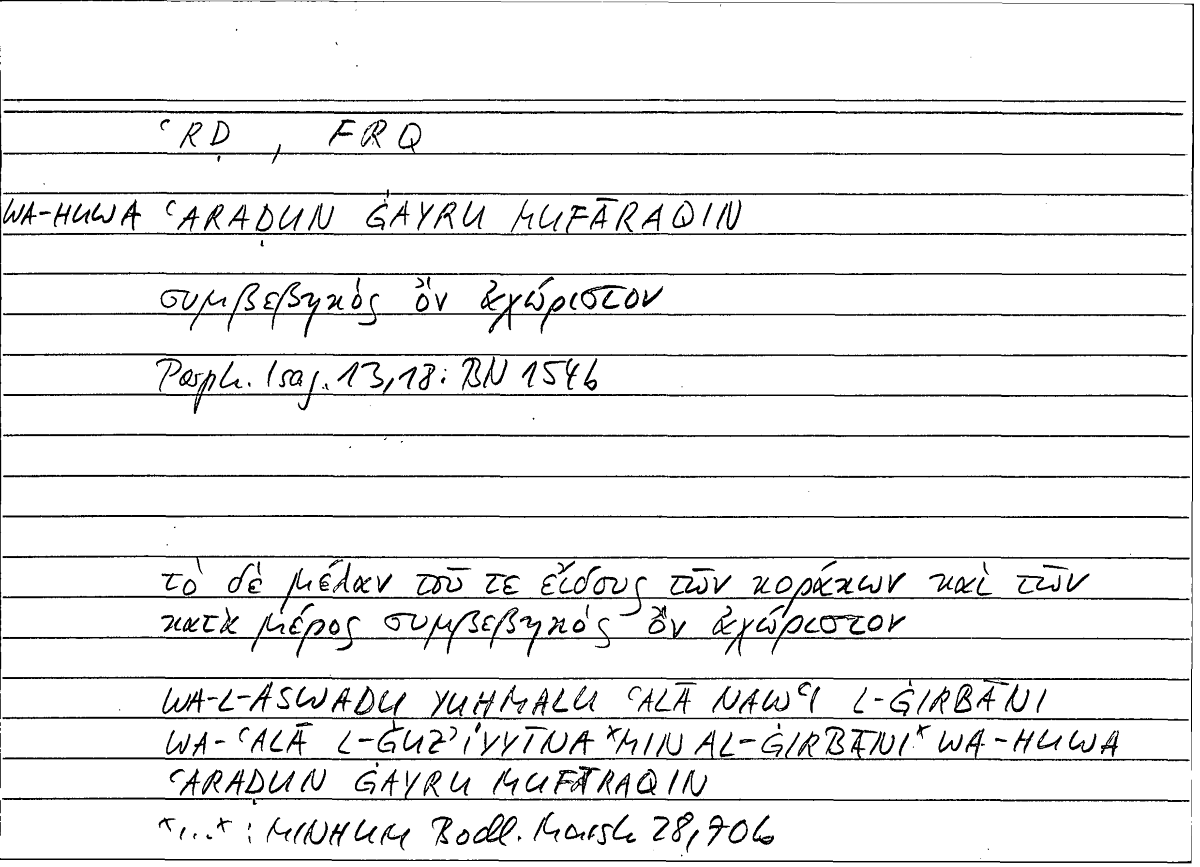 ʿRḌ , FRQ
WA-HUWA ʿARAḌUN ĠAYRU MUFĀRAQIN
συμβεβηκὸς ὂν ἀχώριστον
Porph. Isag. 13,18: BN 154b
τὸ δὲ μέλαν τοῦ τε εἴδους τῶν κοράκων καὶ τῶν
κατὰ μέρος συμβεβηκὸς ὂν ἀχώριστον
WA-L-ASWADU YUHMALU ʿALĀ NAWʿI L-ĠIRBĀNI
WA-ʿALĀ L-ĠUZʾIYYĪNA *MIN AL-ĠIRBĀNI* WA-HUWA
ʿARAḌUN ĠAYRU MUFĀRAQIN
*...* : MINHUM Bodl. Marsh 28,70b